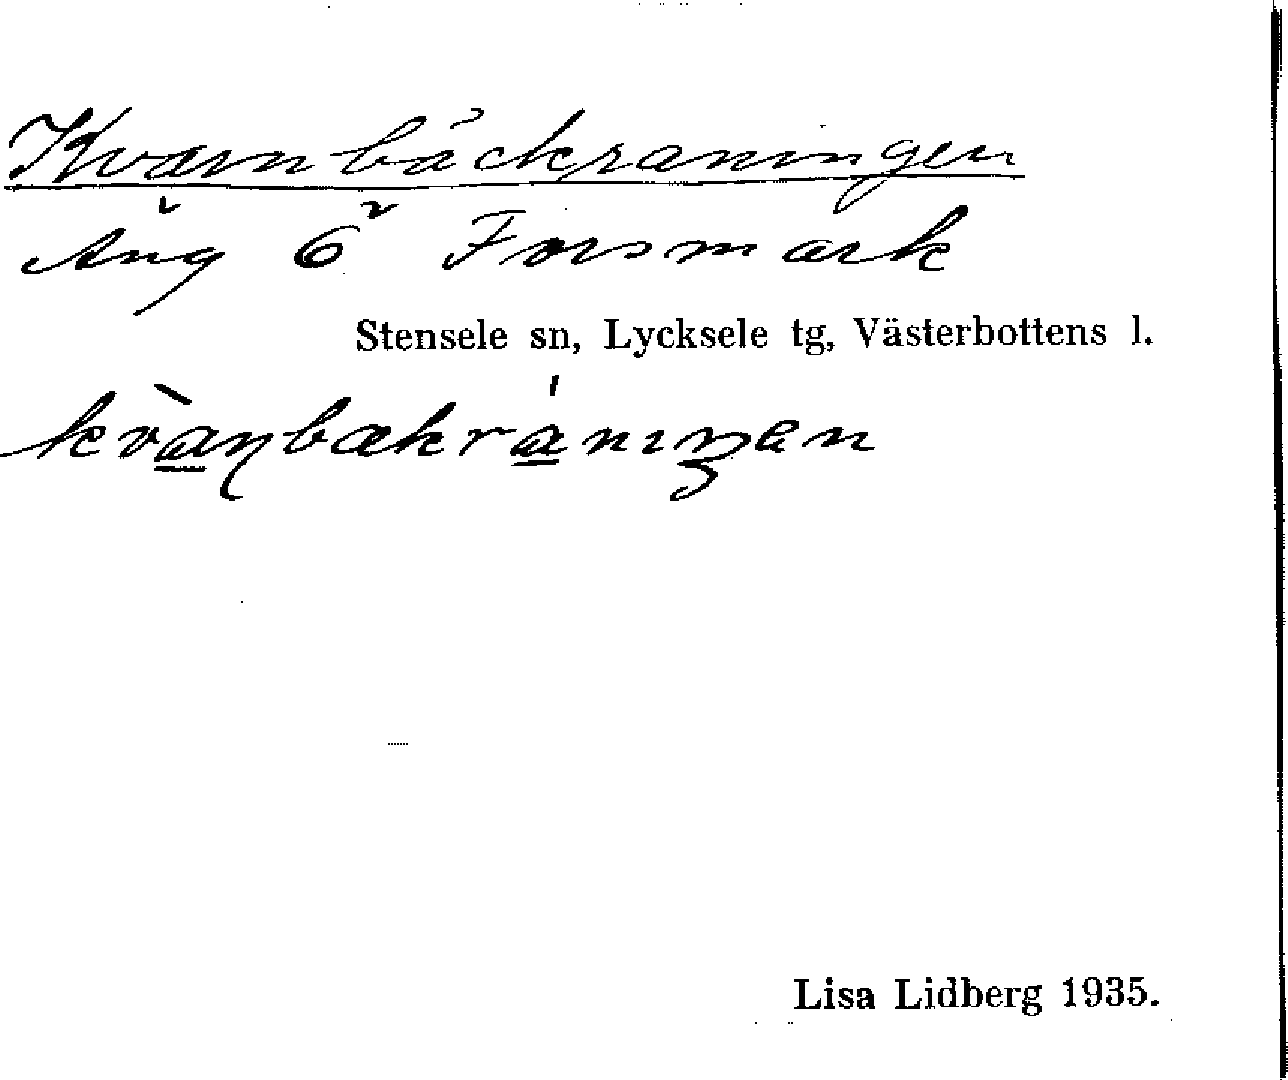 Kvarnbäckraningen
Äng 6² Forsmark
Stensele sn, Lycksele tg, Västerbottens l.
kvànbækránıŋen
Lisa Lidberg 1935.